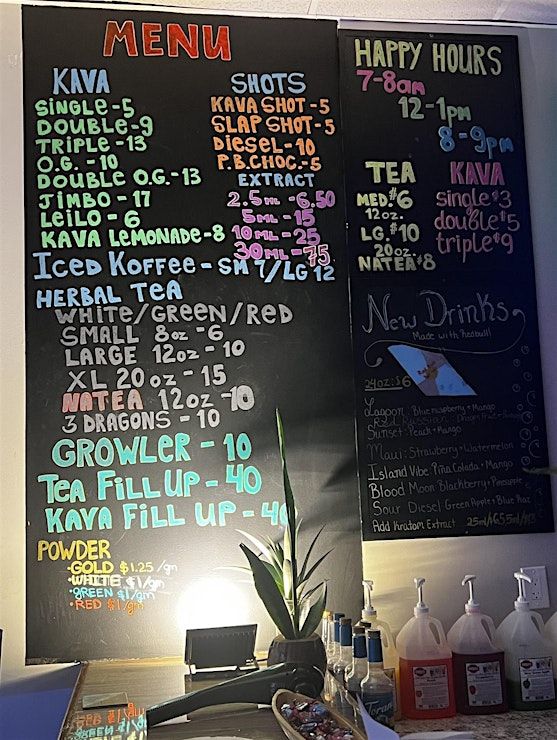 MENU
KAVA
SINGLE-5
DOUBLE-9
TRIPLE-13
O.G.-10
DOUBLE O.G.-13
JIMBO-17
LEILO-6
KAVA LEMONADE-8
SHOTS
KAVA SHOT-5
SLAP SHOT-5
DIESEL-10
P.B.CHOC.-5
EXTRACT
2.5 ML-6.50
5 ML-15
10 ML-25
30 ML-75
ICED KOFFEE-SM 7/LG 12
HERBAL TEA
WHITE/GREEN/RED
SMALL 8oz-6
LARGE 12oz-10
XL 20oz-15
NATEA 12oz-10
3 DRAGONS-10
GROWLER-10
TEA FILL UP-40
KAVA FILL UP-40
POWDER
•GOLD $1.25/gm
•WHITE $1/gm
•GREEN $1/gm
•RED $1/gm
HAPPY HOURS
7-8am
12-1pm
8-9pm
TEA
MED $6
12oz.
LG $10
20oz.
NATEA $8
KAVA
single $3
double $5
triple $9
New Drinks
Made with Redbull!
24oz: $6
Lagoon Blue raspberry + Mango
Sunset - Peach + Mango
Maui: Strawberry + Watermelon
Island Vibe Piña Colada + Mango
Blood Moon Blackberry + Pineapple
Sour Diesel Green Apple + Blue Razz
Add Kratom Extract
Torani